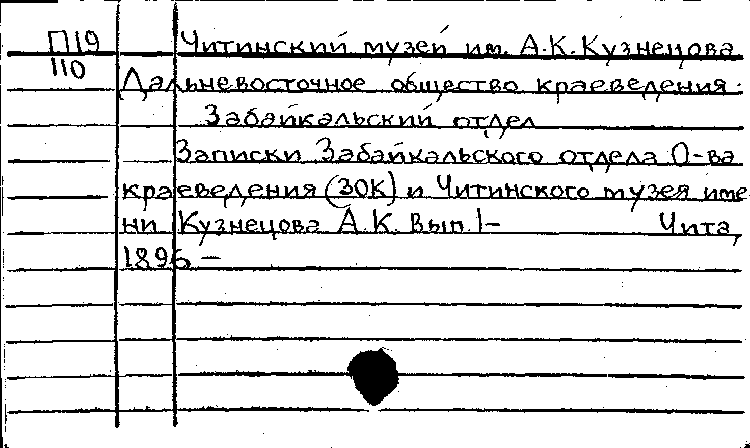 П19 Читинский музей им. А.К. Кузнецова
110 Дальневосточное общество краеведения.
Забайкальский отдел
Записки Забайкальского отдела О-ва
краеведения (ЗОК) и Читинского музея име
ни Кузнецова А.К. Вып. 1- Чита,
1896 -